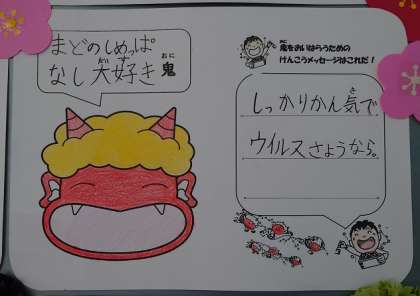 まどのしめっぱ
なし大好き鬼
だ す おに
鬼をおいはらうための
けんこうメッセージはこれだ!
しっかりかん気で
ウイルスさようなら。